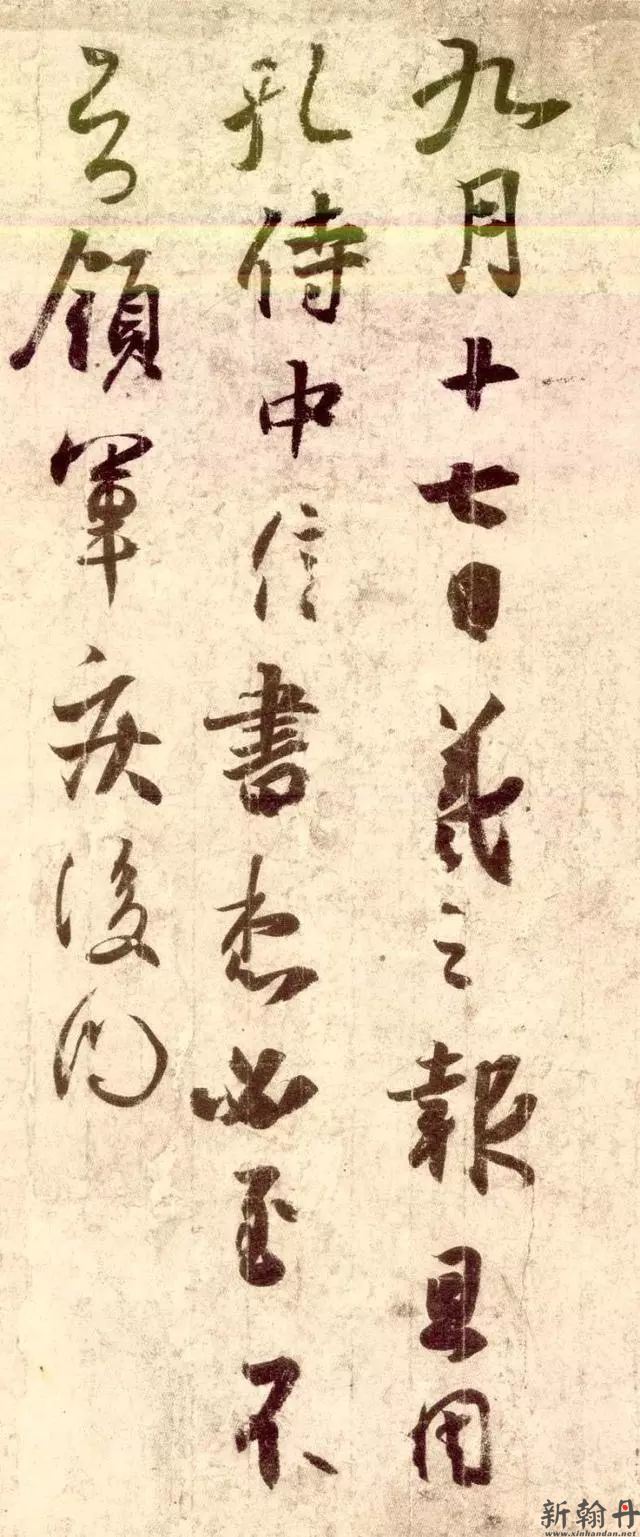 九月十七日羲之報且因
孔侍中信書想必至不
知領軍疾後問
新翰丹
www.xinhandan.net